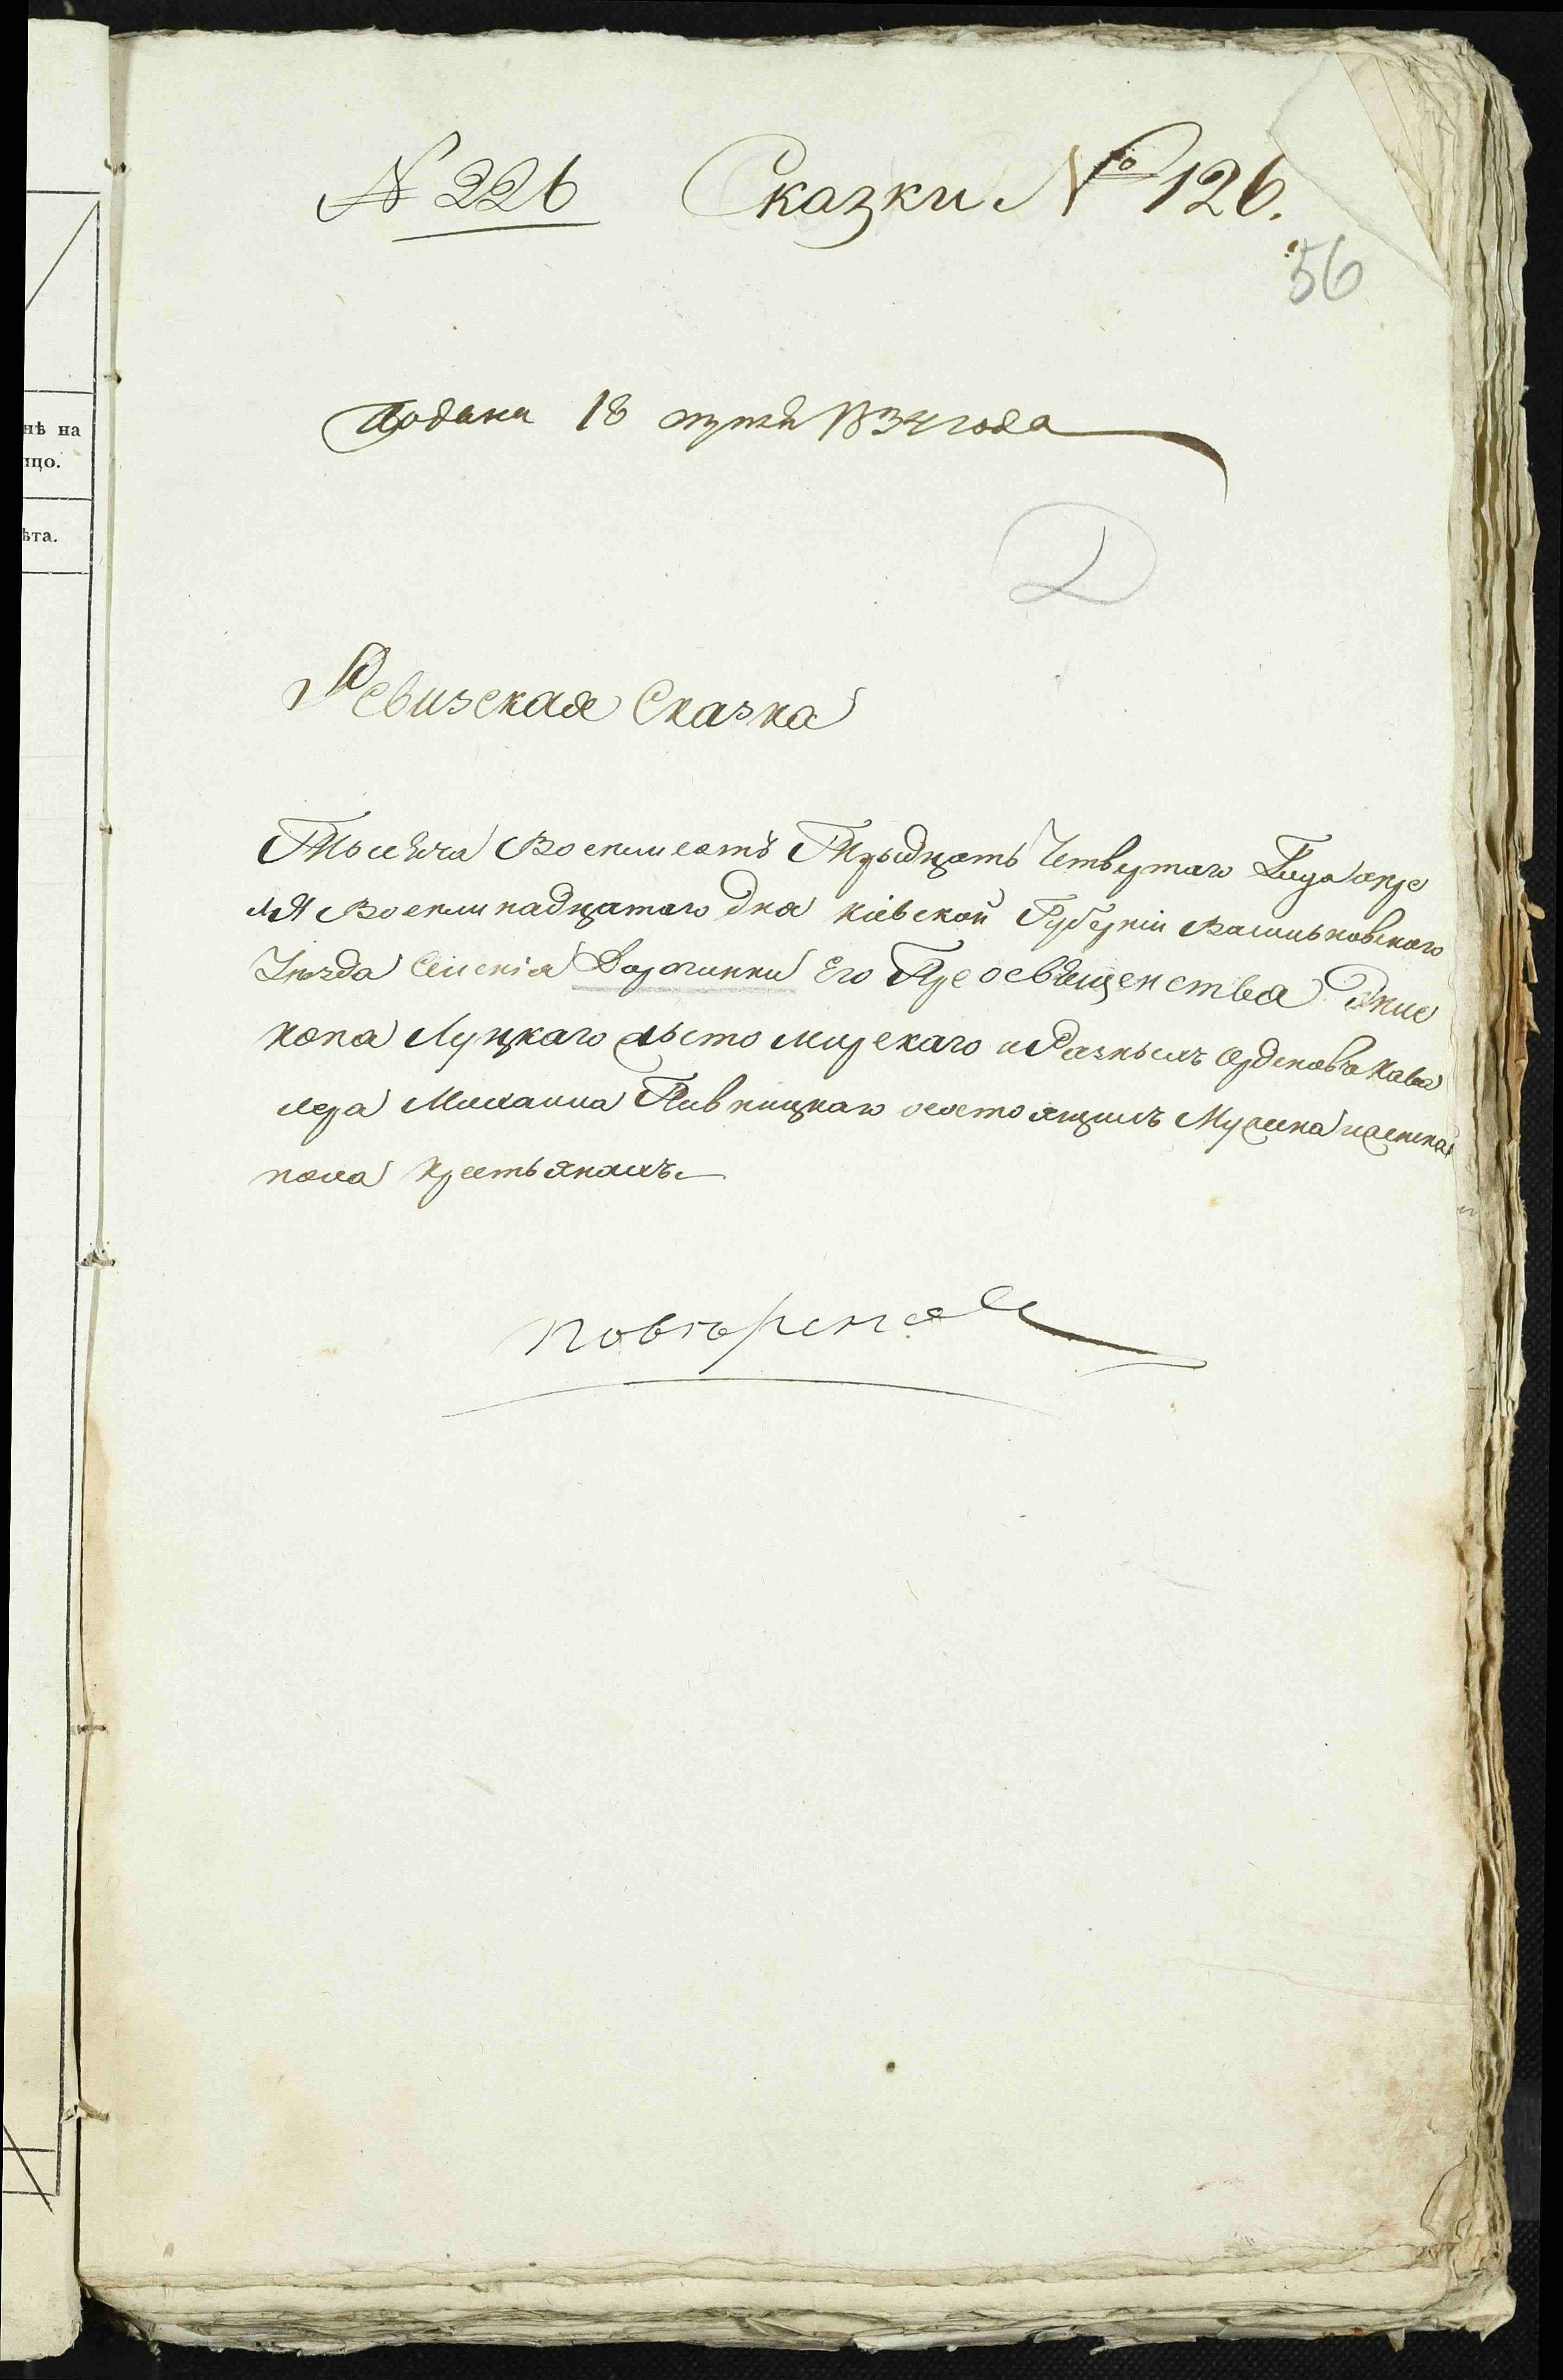 № 226 Сказки № 126.
56
Подана 18 апреля 1834 года
Д
Ревизская Сказка
Тысяча Восемьсотъ Тридцать Четвертаго Года апре
ля Восемнадцатаго Дня Кіевской Губерніи Васильковскаго
Уѣзда Селенія Дорогинки Его Преосвященства Епис
копа Луцкаго Житомирскаго и Разныхъ Орденовъ Кава
лера Михаила Пивницкаго о состоящихъ Мужеска и женска
пола Крестьянахъ
повѣрена
нѣ на
ицо.
ѣта.